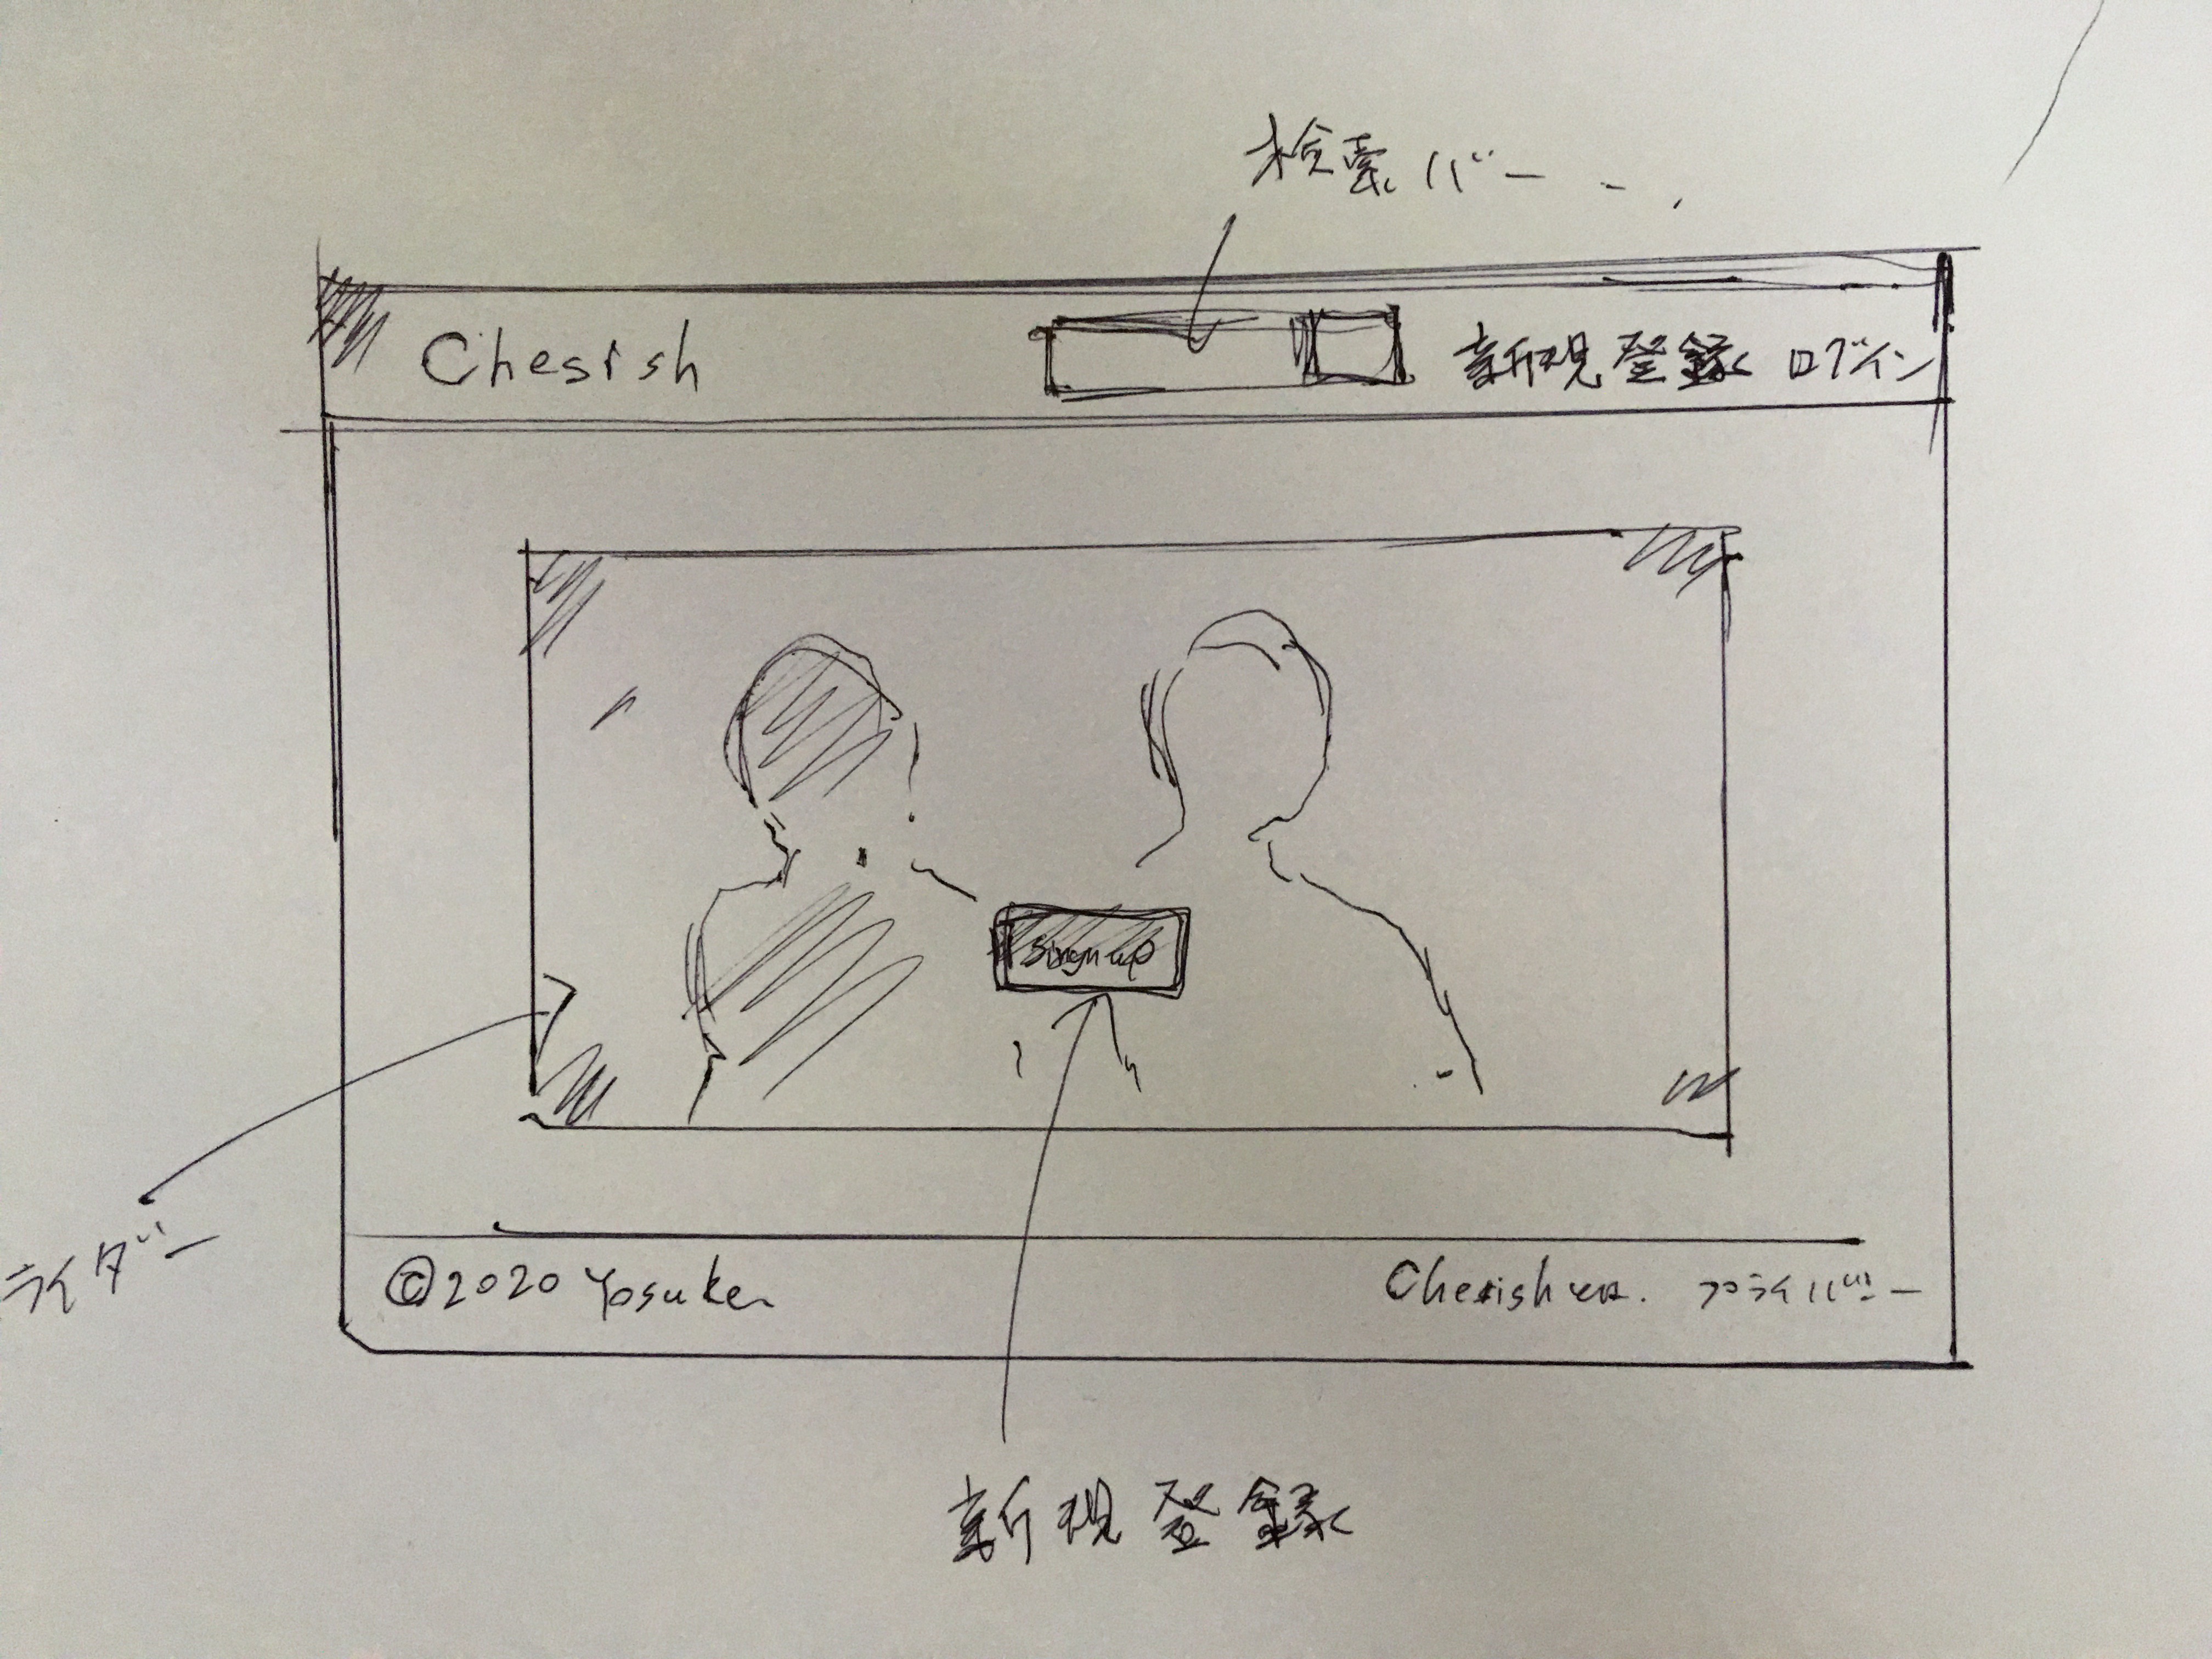 検索バー
Cherish
新規登録 ログイン
Singn up
ライダー
©2020 Yosuke
Cherish プライバシー
新規登録